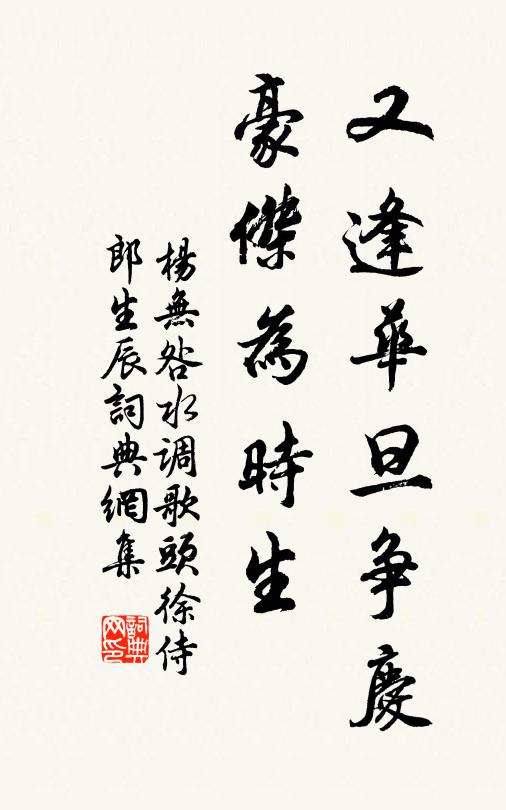 又逢華旦爭慶
豪傑為時生
楊無咎水调歌頭徐侍
郎生辰詞典網集
詞典网印